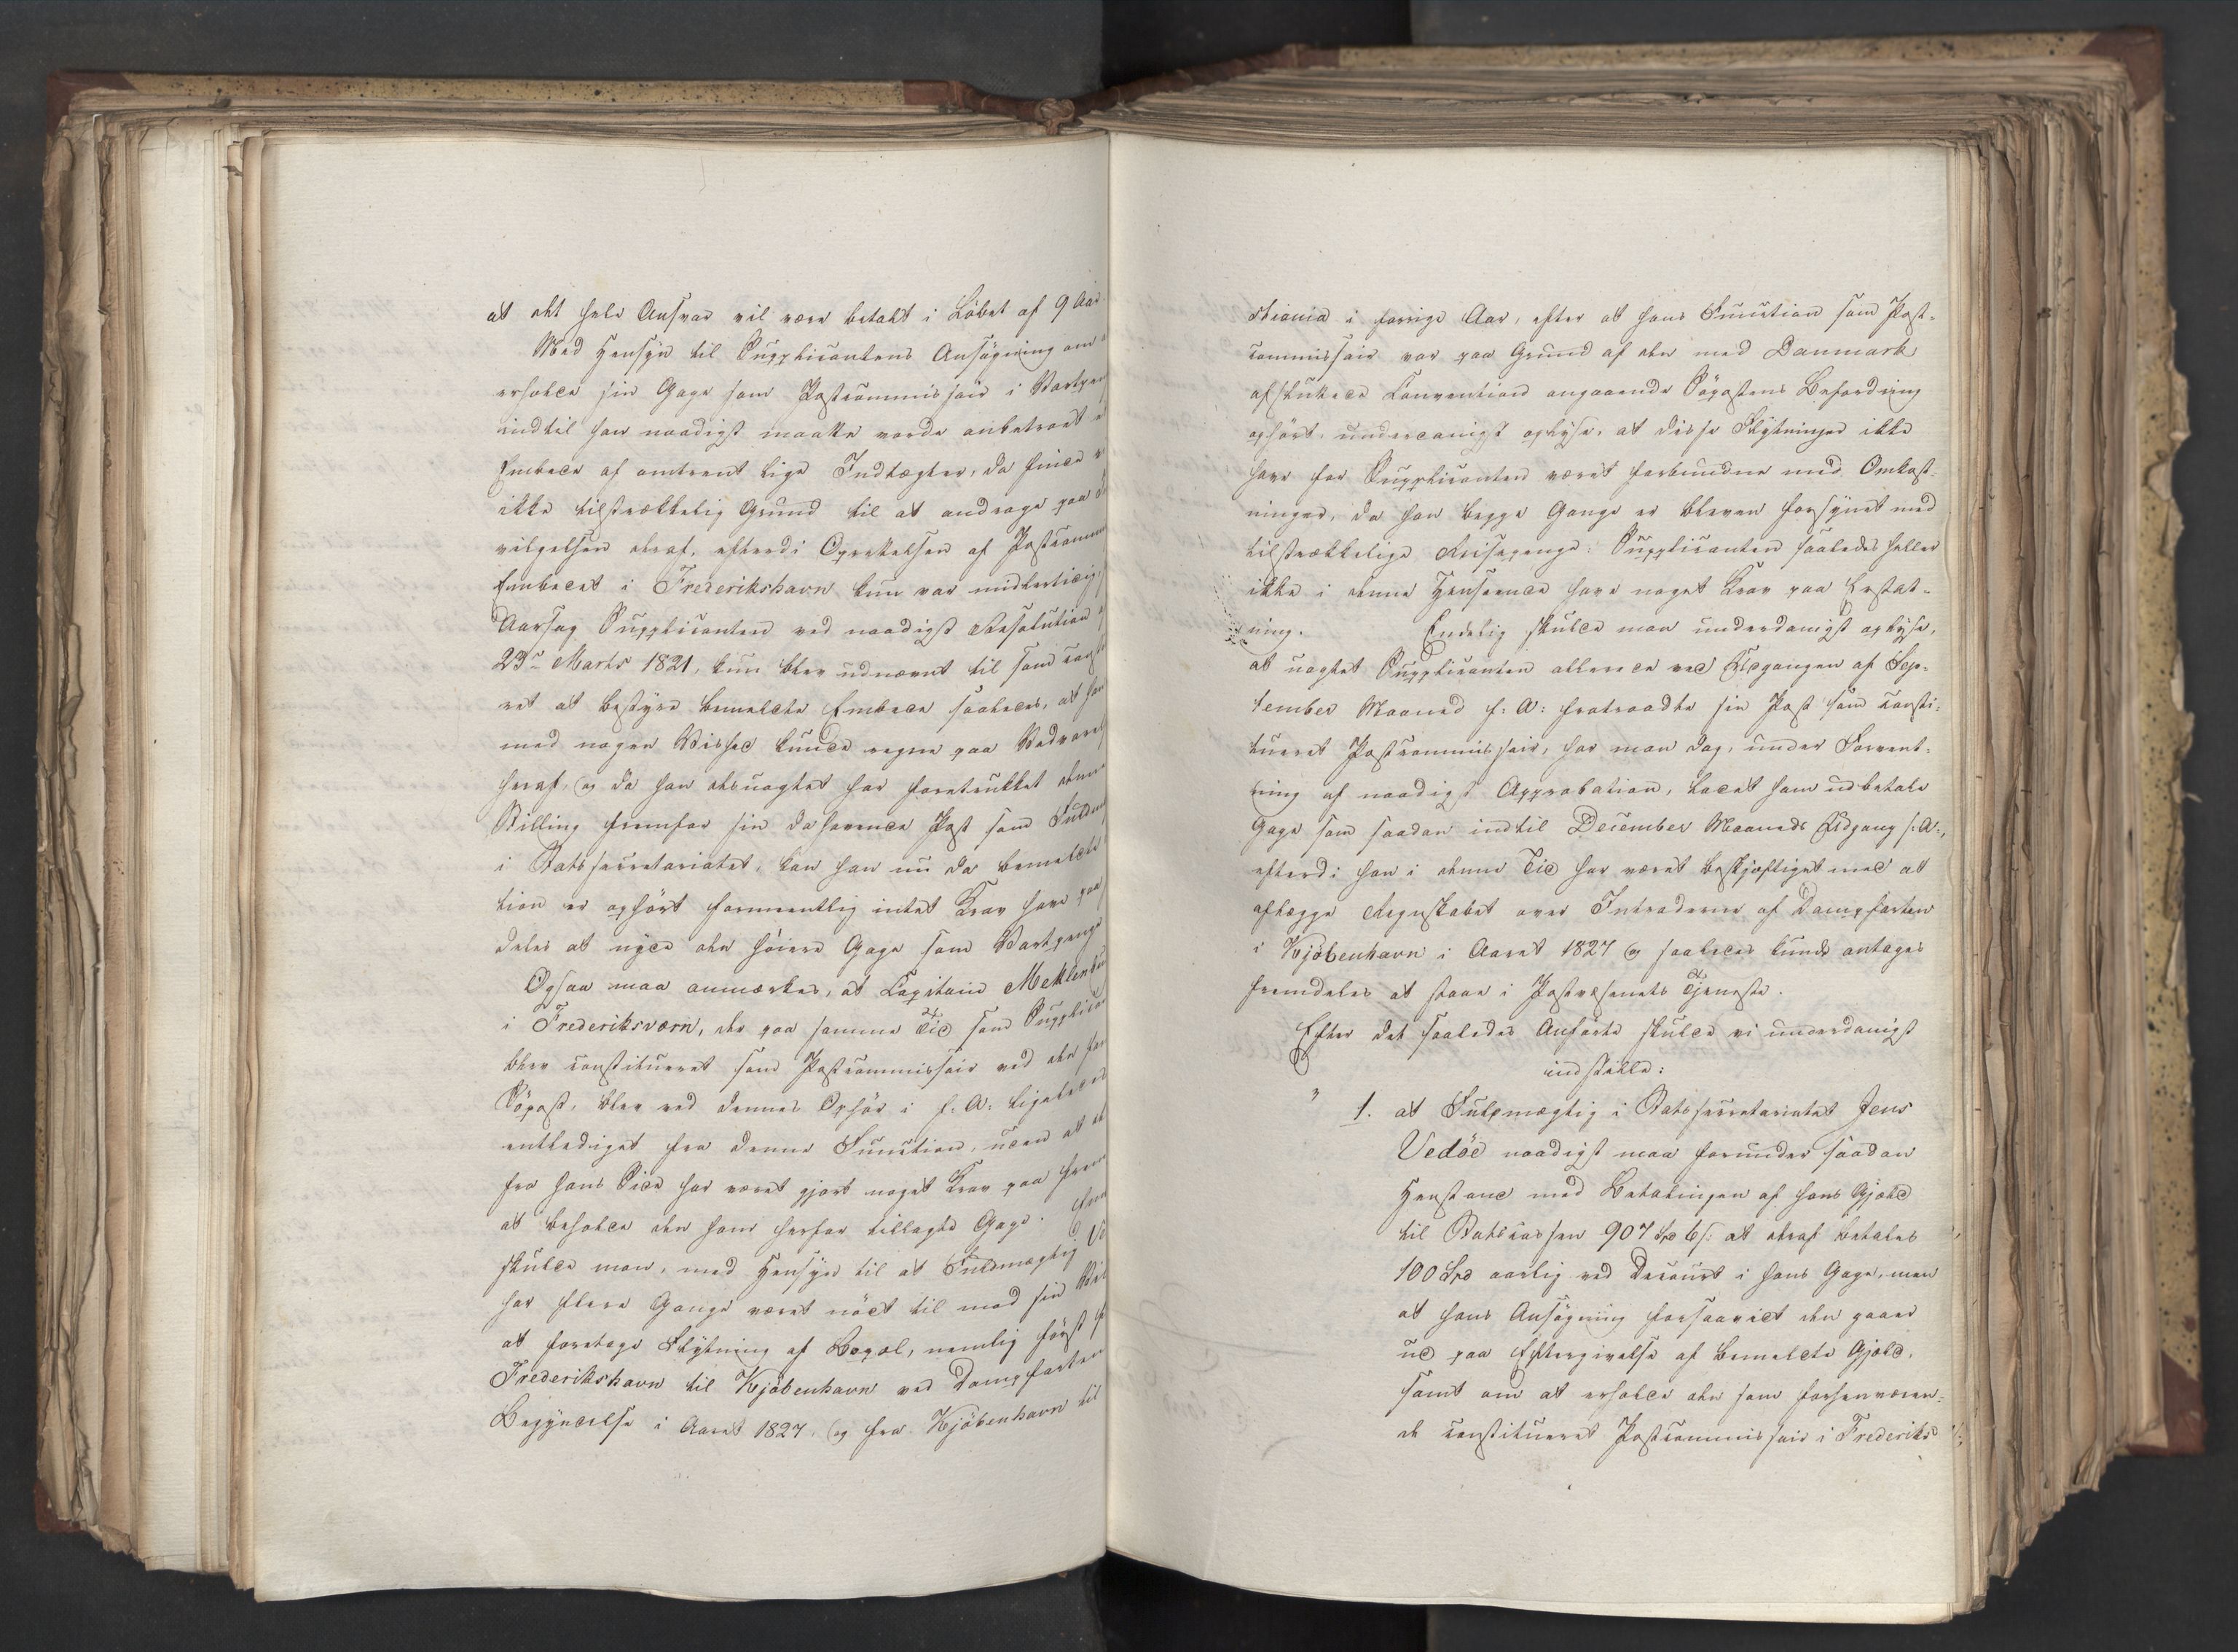 at det hele Ansvar vil være betalt i Löbet af 9 Aar.
Med Hensyn til Supplicantens Ansögning om
erholde sin Gage som Postcommissair i Vartpen
indtil han naadigst maatte vorde anbetroet
Embede af omtrent lige Indtægter, da finde
ikke tilstrækkelig Grund til at andrage paa
vilgelsen deraf, efterdi Oprettelsen af Postcomm
Embedet i Frederikshavn kun var midlertidig,
Aarsag Supplicanten ved naadigst Resolution
23de Marts 1821, kun blev udnævnt til som const
ret at bestyre bemeldte Embede saaledes, at han
med nogen Vished kunde regne paa Vedvaren
heraf, og da han desuagtet har foretrukket denne
Stilling fremfor sin da havende Post som Fuldm
i Statssecretariatet, kan han nu da bemeldte
tion er ophört formeentlig intet Krav have paa
deles at nyde den höiere Gage som Vartpenge
Ogsaa maa anmærkes, at Capitain Meklenbur
i Frederiksværn, der paa samme Tid som Supplican
blev constitueret som Postcommissair ved den
Söpost, blev ved dennes Ophör i f: A: ligeledes
entlediget fra denne Function, uden at
fra hans Side har været gjort noget Krav paa frem
at beholde den ham herfor tillagte Gage. End
skulde man, med Hensyn til at Fuldmægtig Ve
har flere Gange været nödt til med sin
at foretage Flytning af Bopæl, nemlig först
Frederikshavn til Kjöbenhavn ved Dampfarten
Begyndelse i Aaret 1827, og fra Kjöbenhavn til
stiania i forrige Aar, efter at hans Function som Post-
commissair var paa Grund af den med Danmark
afsluttede Convention angaaende Söpostens Befordring
ophört, underdanigst oplyse, at disse Flytninger ikke
have for Supplicanten været forbundne med Omkost-
ninger, da han begge Gange er bleven forsynet med
tilstrækkelige Reisepenge: Supplicanten saaledes heller
ikke i denne Henseende have noget Krav paa Erstat-
ning. Endelig skulde man underdanigst oplyse,
at uagtet Supplicanten allerede ved Udgangen af Sep-
tember Maaned f: A: fratraadte sin Post som consti-
tueret Postcommissair, har man dog, under Forvent-
ning af naadigst Approbation, ladet ham udbetale
Gage som saadan indtil December Maaneds Udgang f: A:,
efterdi han i denne Tid har været beskjæftiget med at
aflægge Regnskabet over Intraderne af Dampfarten
i Kjöbenhavn i Aaret 1827 og saaledes kunde antages
fremdeles at staae i Postvæsenets Tjeneste.
Efter det saaledes Anförte skulde vi underdanigst
indstille:
" 1. at Fuldmægtig i Statssecretariatet Jens
Vedöe naadigst maa forundes saadan
Henstand med Betalingen af hans Gjæld
til Statscassen 907 Spd 6 s: at deraf betales
100 Spd aarlig ved Decourt i hans Gage, men
at hans Ansögning forsaavidt den gaaer
ud paa Eftergivelse af bemeldte Gjæld,
samt om at erholde den som forhenværen-
de constitueret Postcommissair i Frederiks